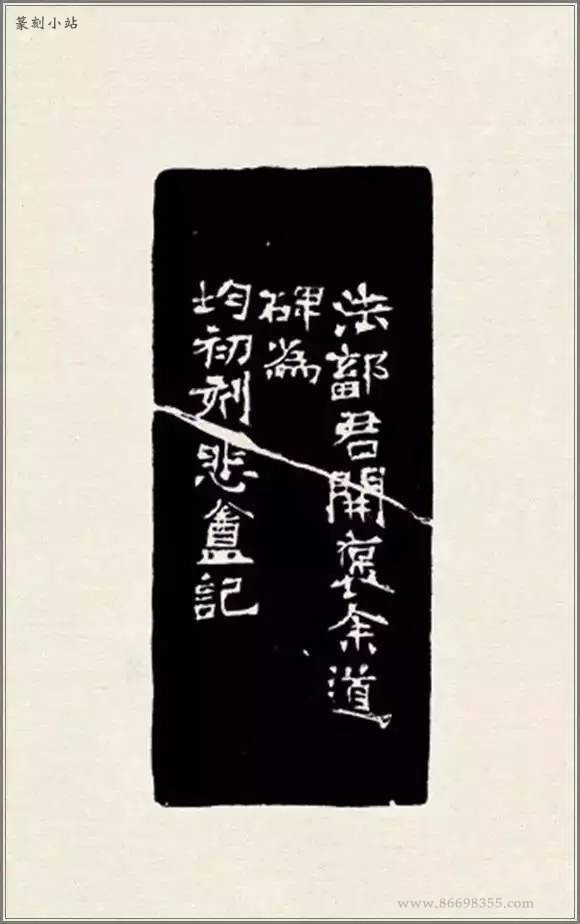 篆刻小站
法鄐君開褒余道
碑為
均初刻悲盦記
www.86698355.com